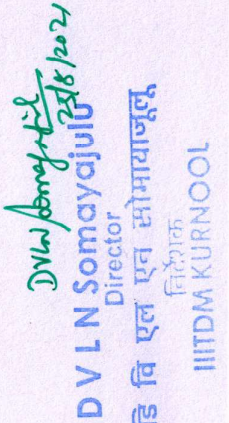 DVLN Somayajulu
23/8/2021
D V L N Somayajulu
Director
डि वि एल एन सोमायाजूलू
निर्देशक
IIITDM KURNOOL